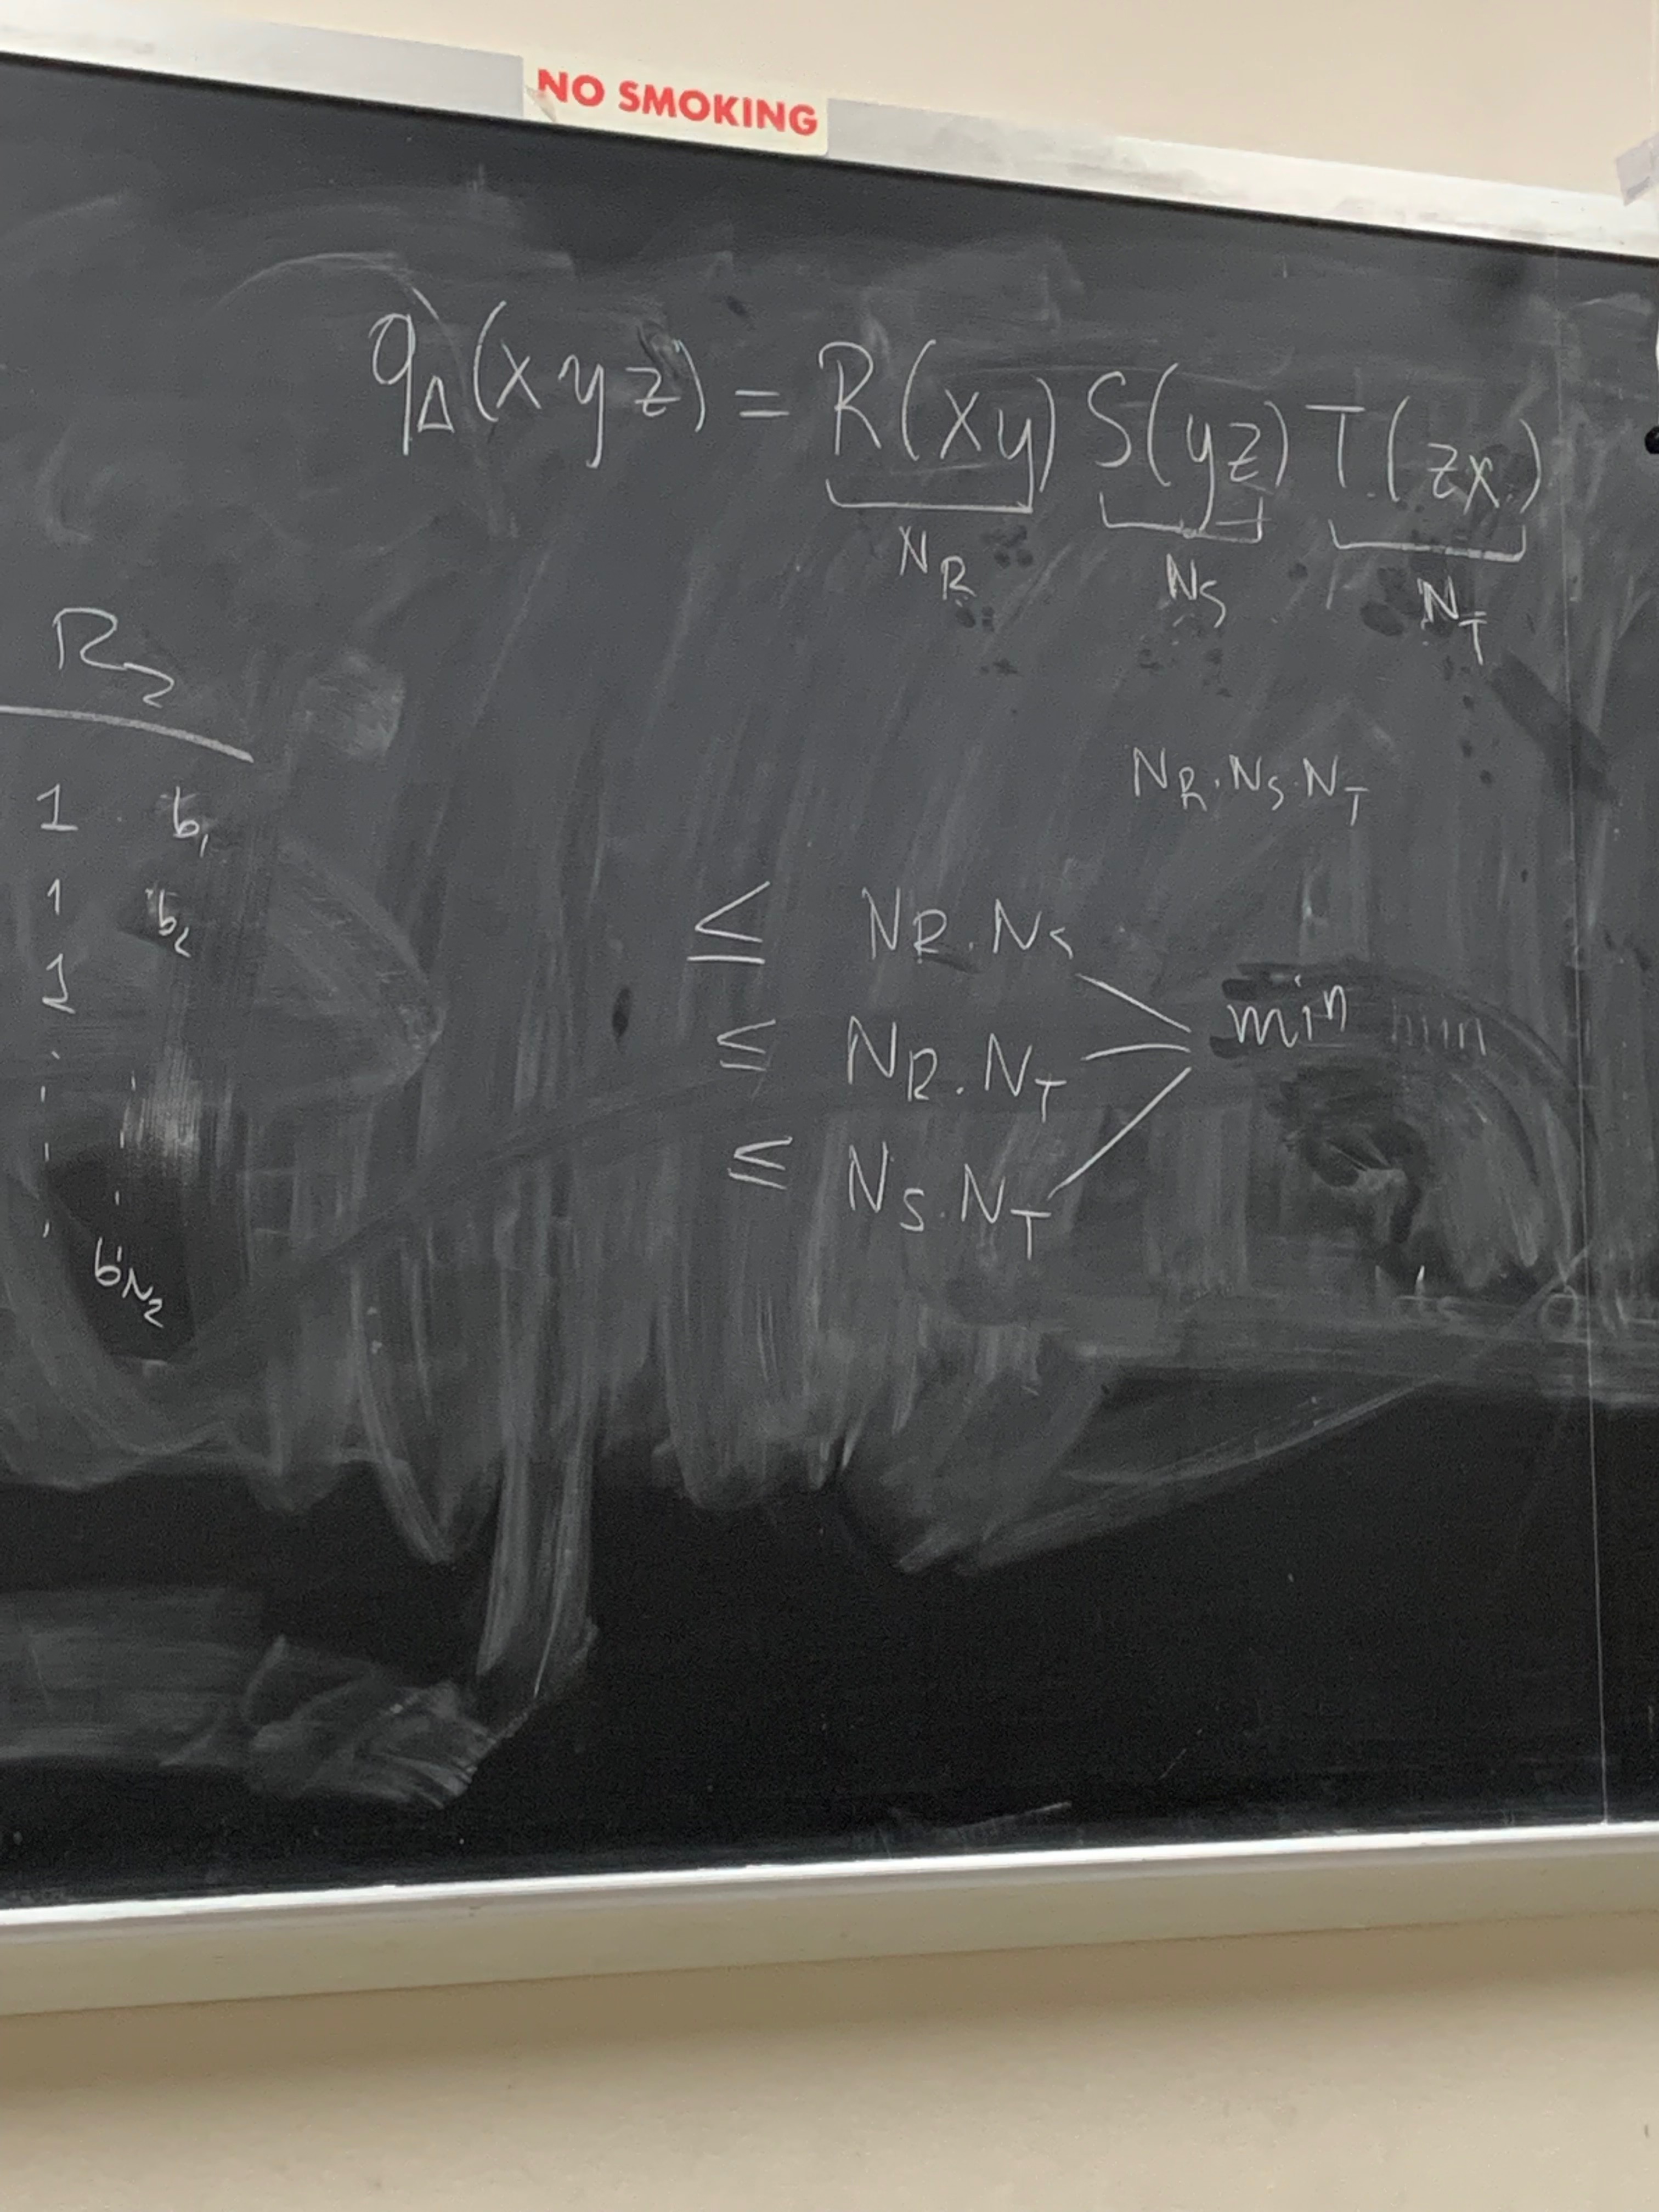 NO SMOKING
q_Δ(x y z) = R(xy) S(yz) T(zx)
N_R N_S N_T
R_2
1 b_1
1 b_2
1
b_{N_2}
N_R . N_S . N_T
≤ N_R . N_S
≤ N_R . N_T
≤ N_S . N_T
min